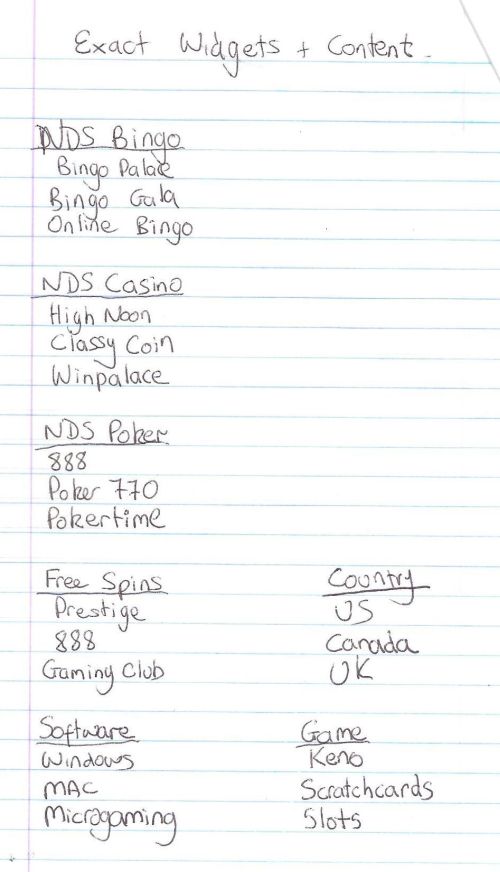 Exact Widgets + Content.
NDS Bingo
Bingo Palace
Bingo Gala
Online Bingo
NDS Casino
High Noon
Classy Coin
Winpalace
NDS Poker
888
Poker 770
Pokertime
Free Spins
Prestige
888
Gaming Club
Country
US
Canada
UK
Software
Windows
MAC
Microgaming
Game
Keno
Scratchcards
Slots